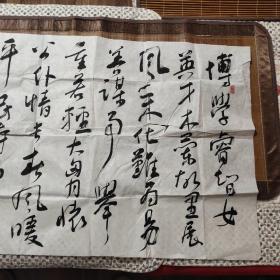 博学睿智女
英才未穷故里展
风采化难为易
善谋而举
重若轻大胸怀
公仆情专春风暖
平